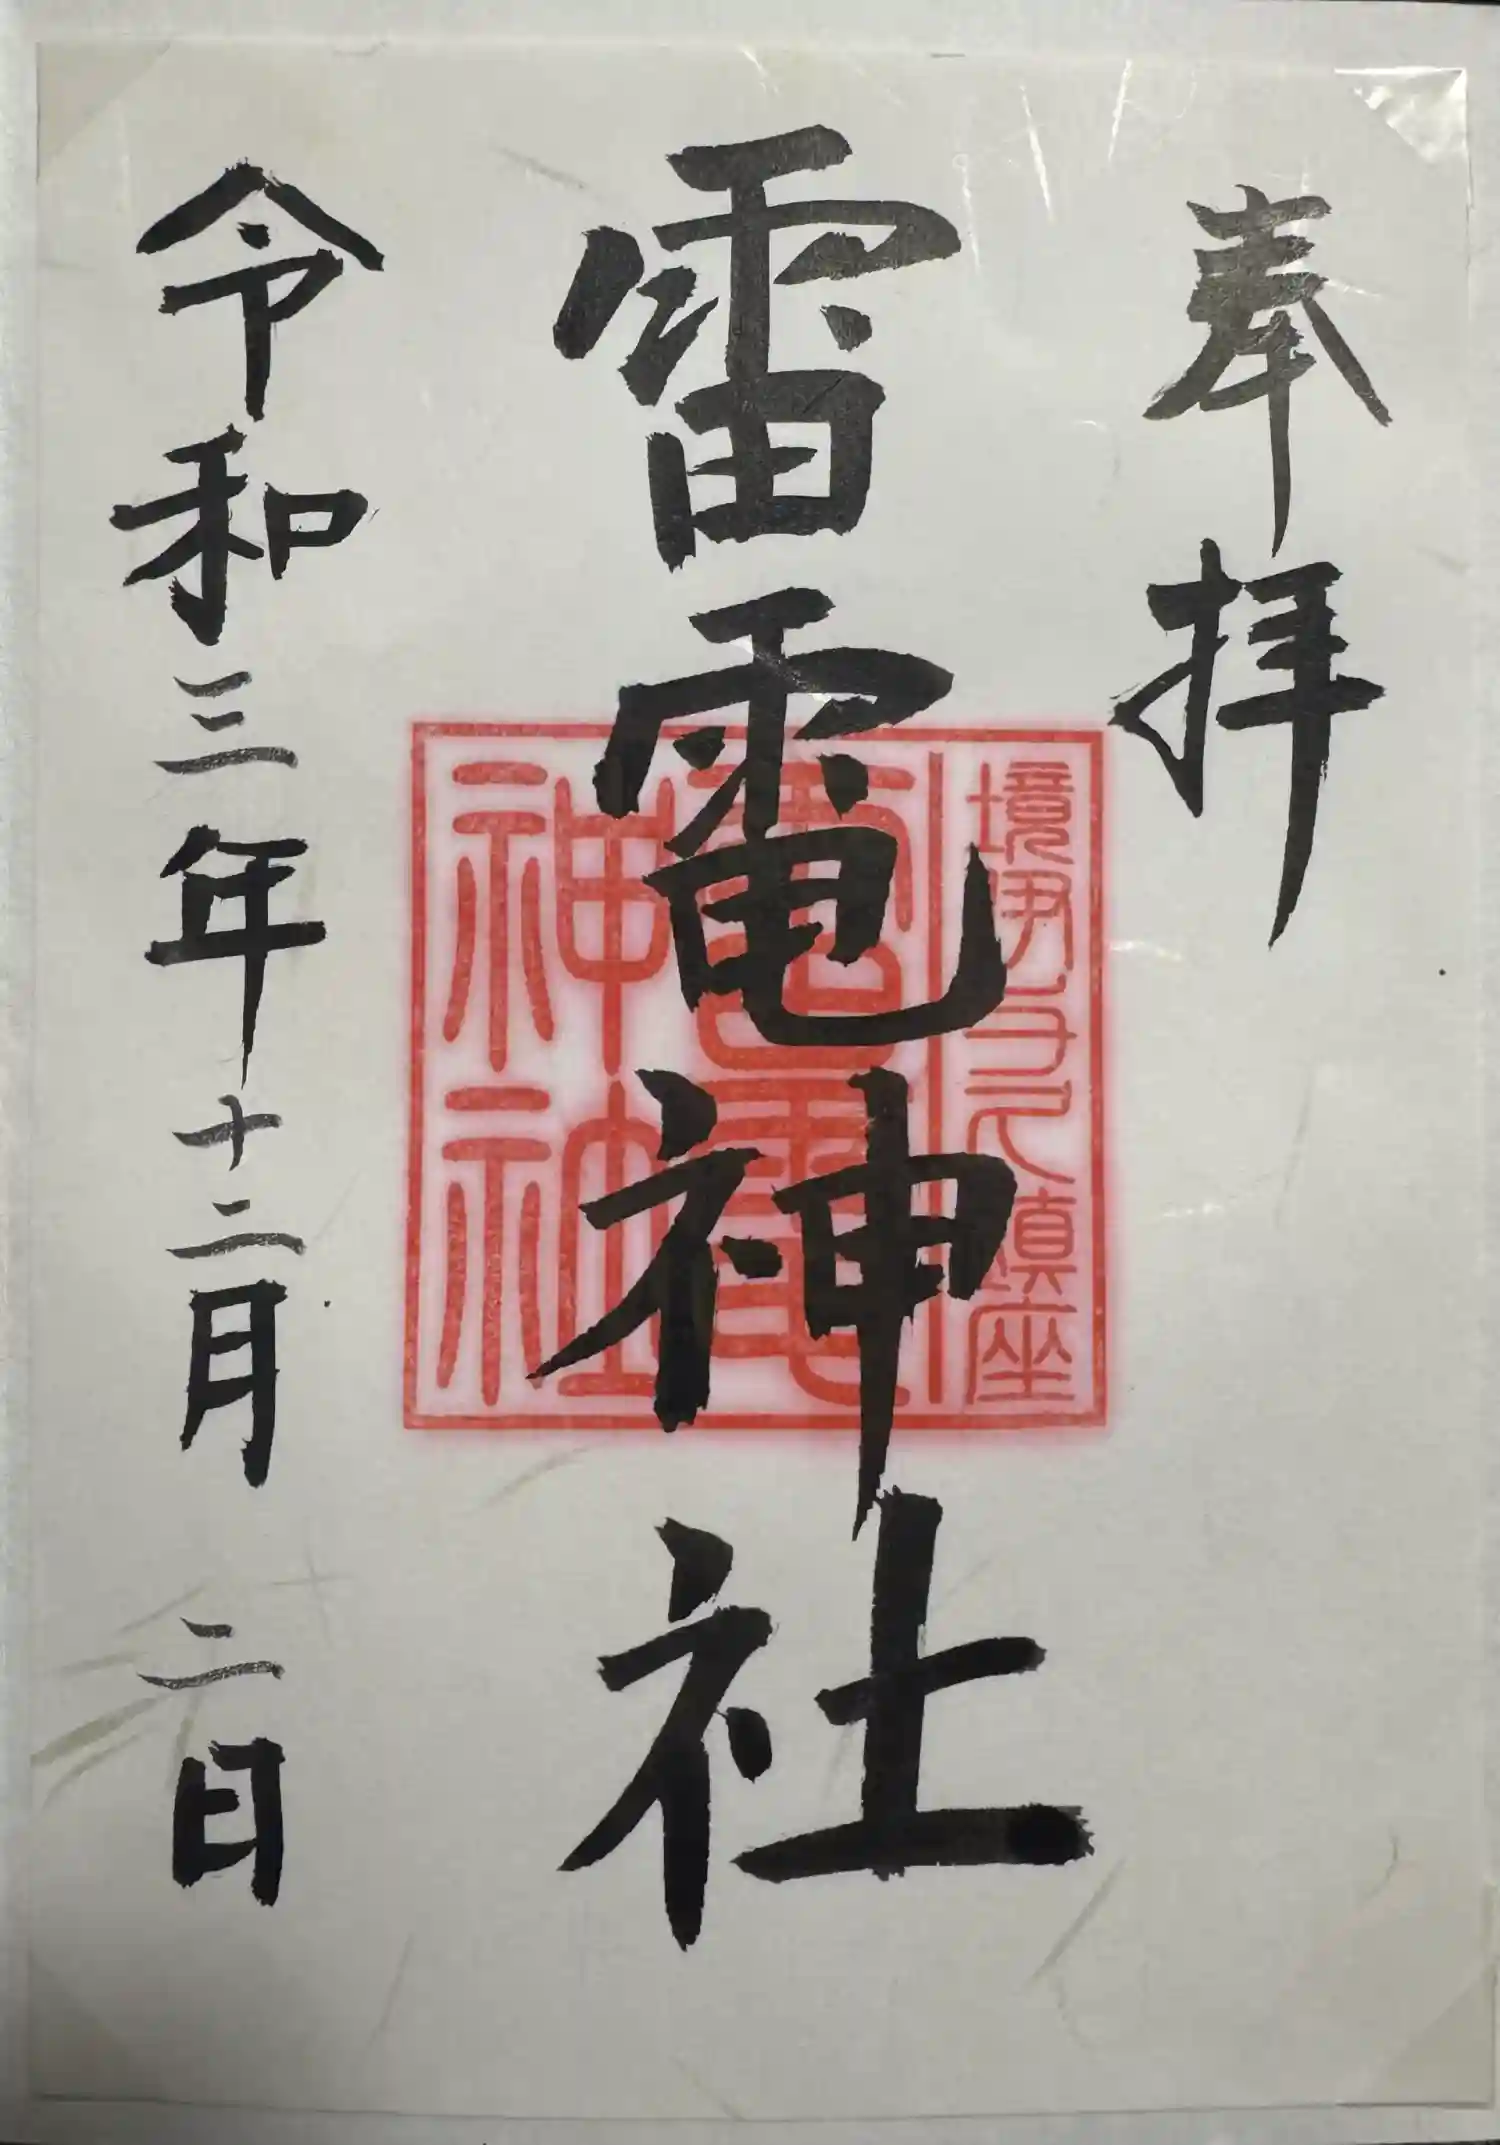 奉拝
雷電神社
令和三年十二月 二日
境伊勢崎鎮座
雷電神社